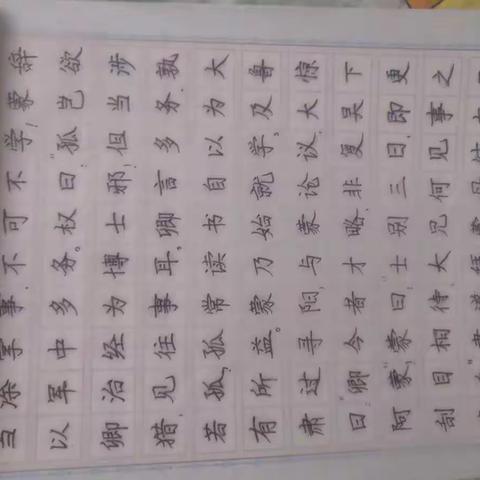 当涂掌事,不可不学!蒙辞
以军中多务。权曰:"孤岂欲
卿治经为博士邪!但当涉
猎,见往事耳,卿言多务,孰
若孤?孤常读书自以为大
有所益。蒙乃始就学,及鲁
肃过寻阳,与蒙论议,大惊
曰:"卿今者才略,非复吴下
阿蒙!"蒙曰:"士别三日,即更
刮目相待,大兄何见事之